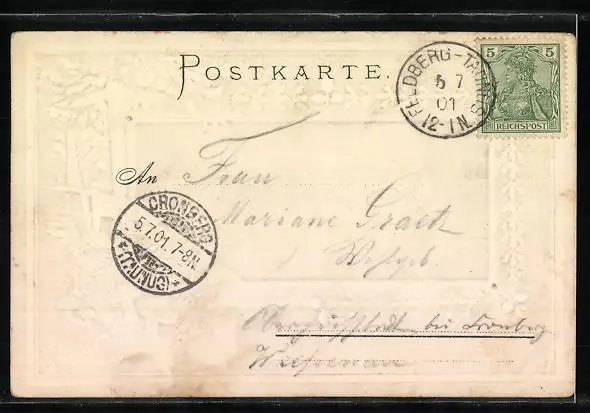 POSTKARTE.
FELDBERG-TAUNUS
5 7
01
12-1N.
5 5
REICHSPOST
An Frau
Mariane Graetz
CRONBERG
5.7.01.7-8N.
*(TAUNUS)*
bei Cronberg